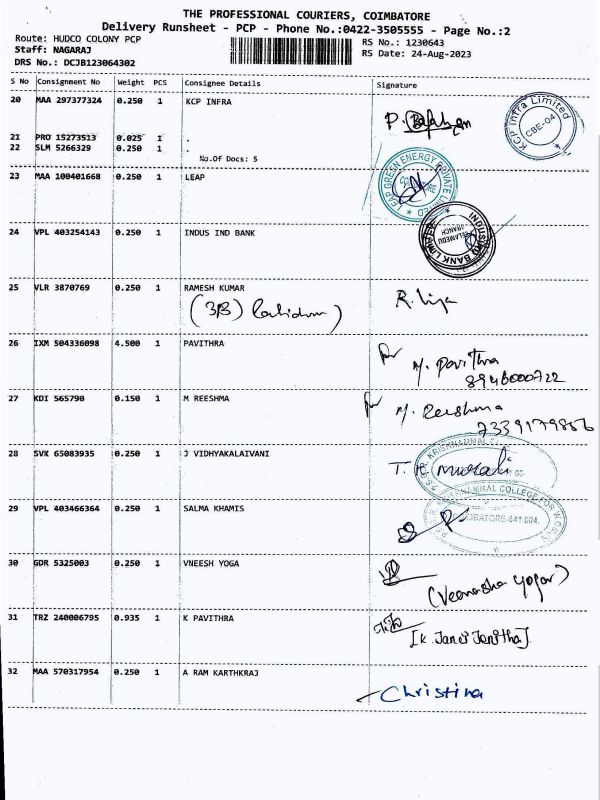 THE PROFESSIONAL COURIERS, COIMBATORE
Delivery Runsheet - PCP - Phone No.:0422-3505555 - Page No.:2
Route: HUDCO COLONY PCP
Staff: NAGARAJ
DRS No.: DCJB123064302
RS No.: 1230643
RS Date: 24-Aug-2023
S No Consignment No Weight PCS Consignee Details Signature
20 MAA 297377324 0.250 1 KCP INFRA
KCP Infra Limited
CBE-04
21 PRO 15273513 0.025 1 .
22 SLM 5266329 0.250 1 .
No.Of Docs: 5
23 MAA 100401668 0.250 1 LEAP
LEAP GREEN ENERGY PRIVATE LIMITED
24 VPL 403254143 0.250 1 INDUS IND BANK
INDUSIND BANK LIMITED
BRANCH
25 VLR 3870769 0.250 1 RAMESH KUMAR
26 IXM 504336098 4.500 1 PAVITHRA
for M. Pavithra
8946000722
27 KDI 565790 0.150 1 M REESHMA
for M. Reeshma
7339179856
28 SVK 65083935 0.250 1 J VIDHYAKALAIVANI
T. R. Murali
29 VPL 403466364 0.250 1 SALMA KHAMIS
KRISHNAMMAL COLLEGE FOR WOMEN
COIMBATORE-641 004.
30 GDR 5325003 0.250 1 VNEESH YOGA
31 TRZ 240006795 0.935 1 K PAVITHRA
32 MAA 570317954 0.250 1 A RAM KARTHKRAJ
Christina